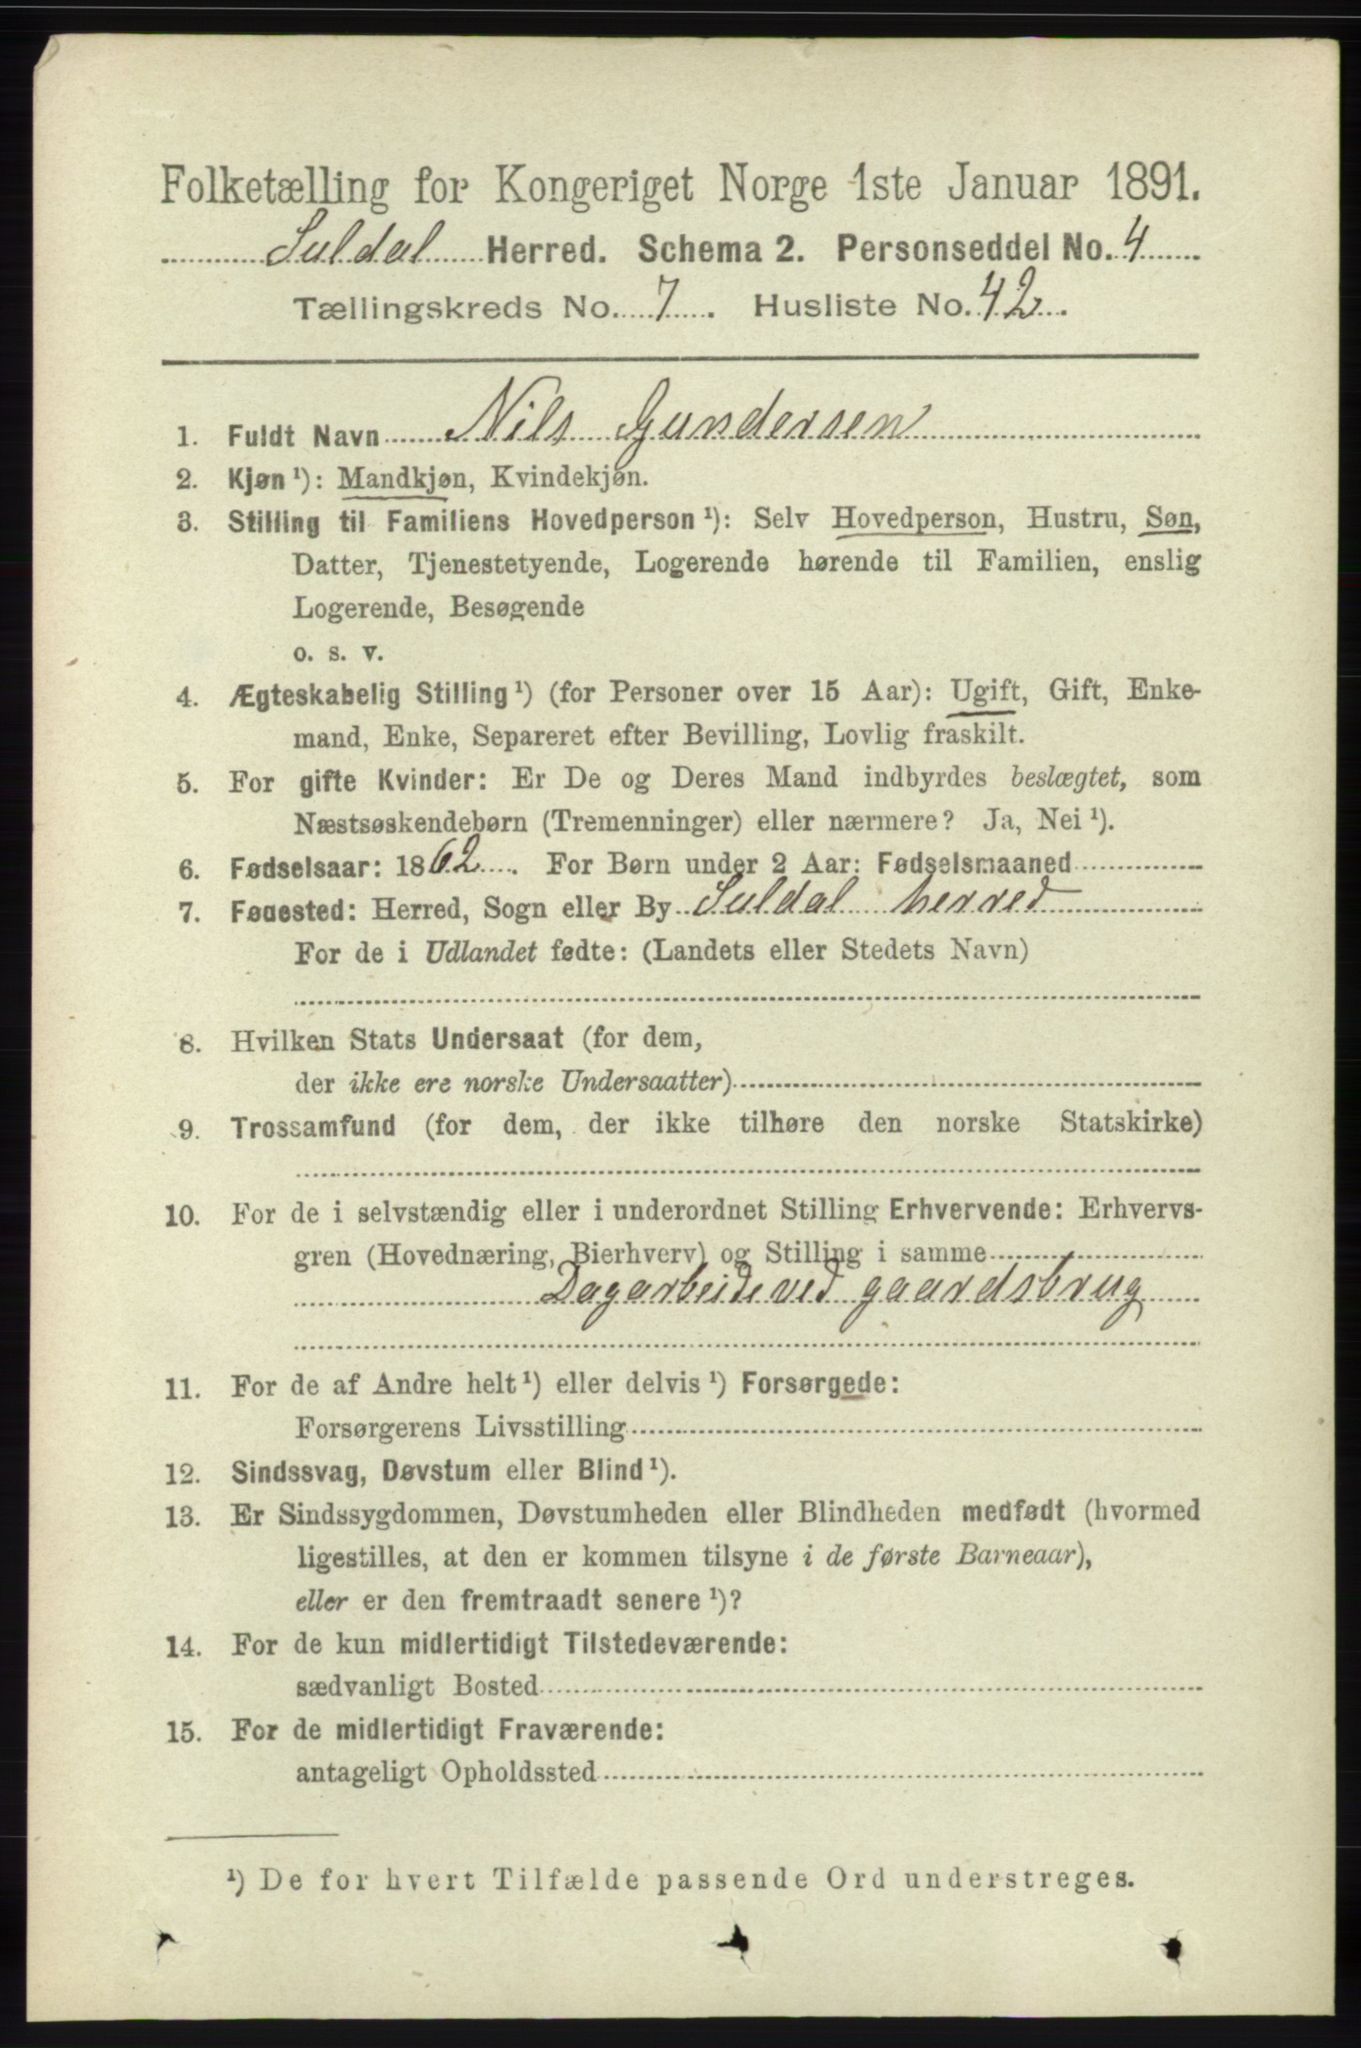 Folketælling for Kongeriget Norge 1ste Januar 1891.
Suldal Herred. Schema 2. Personseddel No. 4
Tællingskreds No. 7. Husliste No. 42.
1. Fuldt Navn Nils Gundersen
2. Kjøn ¹): Mandkjøn, Kvindekjøn.
3. Stilling til Familiens Hovedperson ¹): Selv Hovedperson, Hustru, Søn,
Datter, Tjenestetyende, Logerende hørende til Familien, enslig
Logerende, Besøgende
o. s. v.
4. Ægteskabelig Stilling ¹) (for Personer over 15 Aar): Ugift, Gift, Enke-
mand, Enke, Separeret efter Bevilling, Lovlig fraskilt.
5. For gifte Kvinder: Er De og Deres Mand indbyrdes beslægtet, som
Næstsøskendebørn (Tremenninger) eller nærmere? Ja, Nei ¹).
6. Fødselsaar: 1862. For Børn under 2 Aar: Fødselsmaaned
7. Fødested: Herred, Sogn eller By Suldal herred
For de i Udlandet fødte: (Landets eller Stedets Navn)
8. Hvilken Stats Undersaat (for dem,
der ikke ere norske Undersaatter)
9. Trossamfund (for dem, der ikke tilhøre den norske Statskirke)
10. For de i selvstændig eller i underordnet Stilling Erhvervende: Erhvervs-
gren (Hovednæring, Bierhverv) og Stilling i samme
Dagarbeide ved gaardsbrug
11. For de af Andre helt ¹) eller delvis ¹) Forsørgede:
Forsørgerens Livsstilling
12. Sindssvag, Døvstum eller Blind ¹).
13. Er Sindssygdommen, Døvstumheden eller Blindheden medfødt (hvormed
ligestilles, at den er kommen tilsyne i de første Barneaar),
eller er den fremtraadt senere ¹)?
14. For de kun midlertidigt Tilstedeværende:
sædvanligt Bosted
15. For de midlertidigt Fraværende:
antageligt Opholdssted
¹) De for hvert Tilfælde passende Ord understreges.